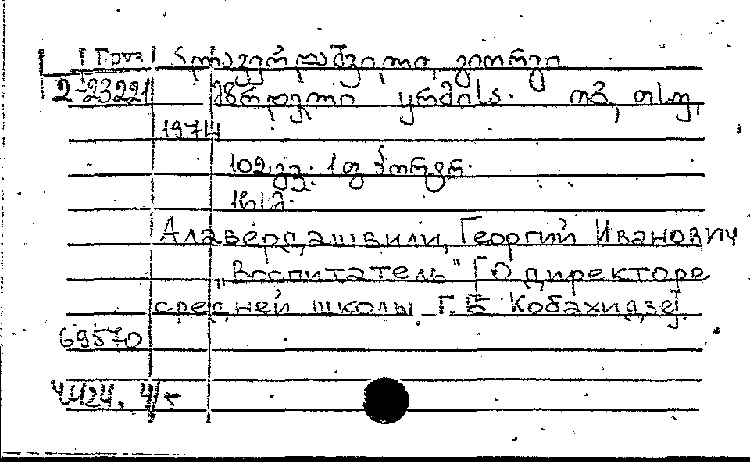 Груз ალავერდაშვილი, გიორგი
2-23221 აღზრდელი ყრმისა. თბ, ისუ,
1974
102 გვ. 1 ფ პორტრ.
16/ა.
Алавердашвили, Георгий Иванович
„Воспитатель" [О директоре
средней школы Г.Е Кобахидзе].
69570